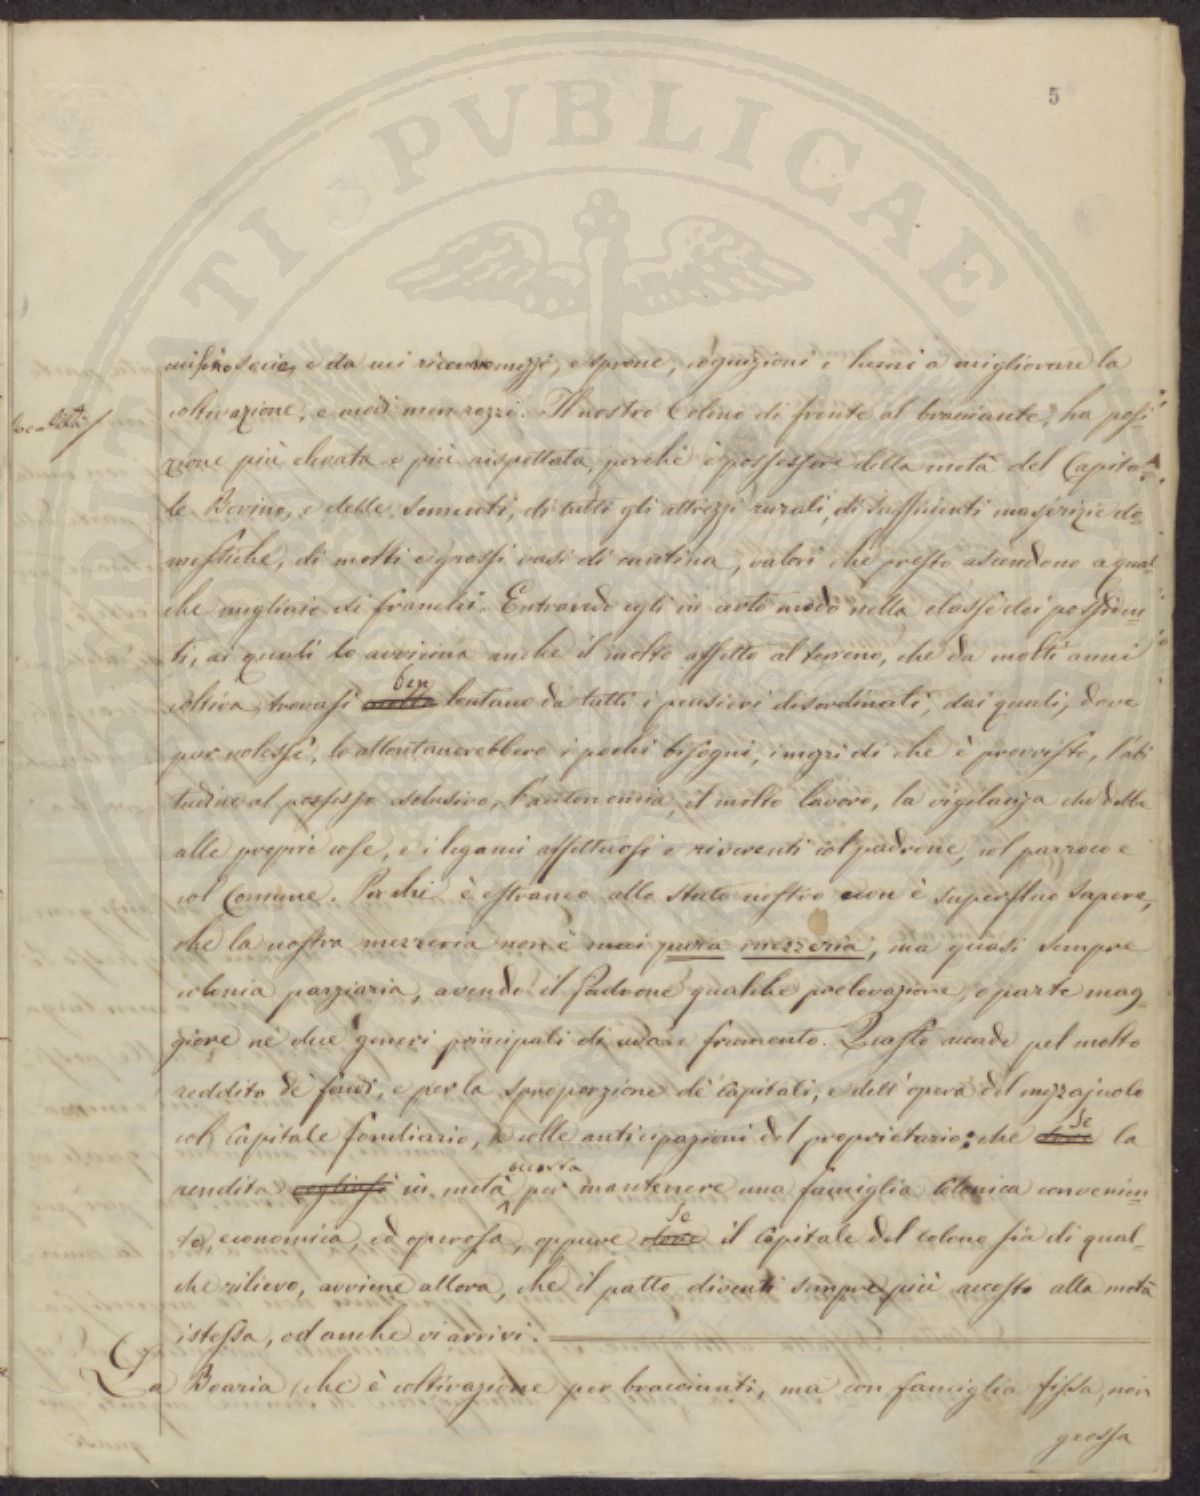 5
PVBLICAE
e da cui riceve mezzi, e sprone, cognizioni e lumi a migliorare la
località/
coltivazione, e modi men rozzi. Il nostro Colono di fronte al bracciante, ha posi-
zione più elevata e più rispettata, perchè è possessore della metà del Capita-
le Bovino, e delle sementi, di tutti gli attrezzi rurali, di sufficienti masserizie do-
mestiche, di molti e grossi vasi di cantina, valori che presto ascendono a qual-
che migliaio di franchi. Entrando egli in certo modo nella classe dei possiden-
ti, ai quali lo avvicina anche il molto affetto al terreno, che da molti anni
ben
coltiva, trovasi molto lontano da tutti i pensieri disordinati, dai quali, dove
pur volesse, lo allontanerebbero i pochi bisogni, i mezzi di che è provvisto, l'abi
tudine al possesso esclusivo, l'autonomia, il molto lavoro, la vigilanza che debbe
alle proprie cose, e i legami affettuosi e riverenti col padrone, col parroco e
col Comune. Per chi è estraneo allo Stato nostro non è superfluo sapere,
che la nostra mezzeria non è mai pura mezzeria, ma quasi sempre
colonia parziaria, avendo il Padrone qualche prelevazione, o parte mag-
giore nè due generi principali di uva e frumento. Questo accade pel molto
reddito dè fondi, e per la sproporzione dè Capitali, e dell'opera del mezzajuolo
se
col Capitale fondiario, e colle anticipazioni del proprietario: che dove la
rendita in metà per mantenere una famiglia Colonica convenien-
se
te, economica, ed operosa, oppure dove il Capitale del colono sia di qual-
che rilievo, avviene allora, che il patto diventi sempre più accosto alla metà
istessa, od anche vi arrivi.
La Boaria, che è coltivazione per braccianti, ma con famiglia fissa, non
grossa